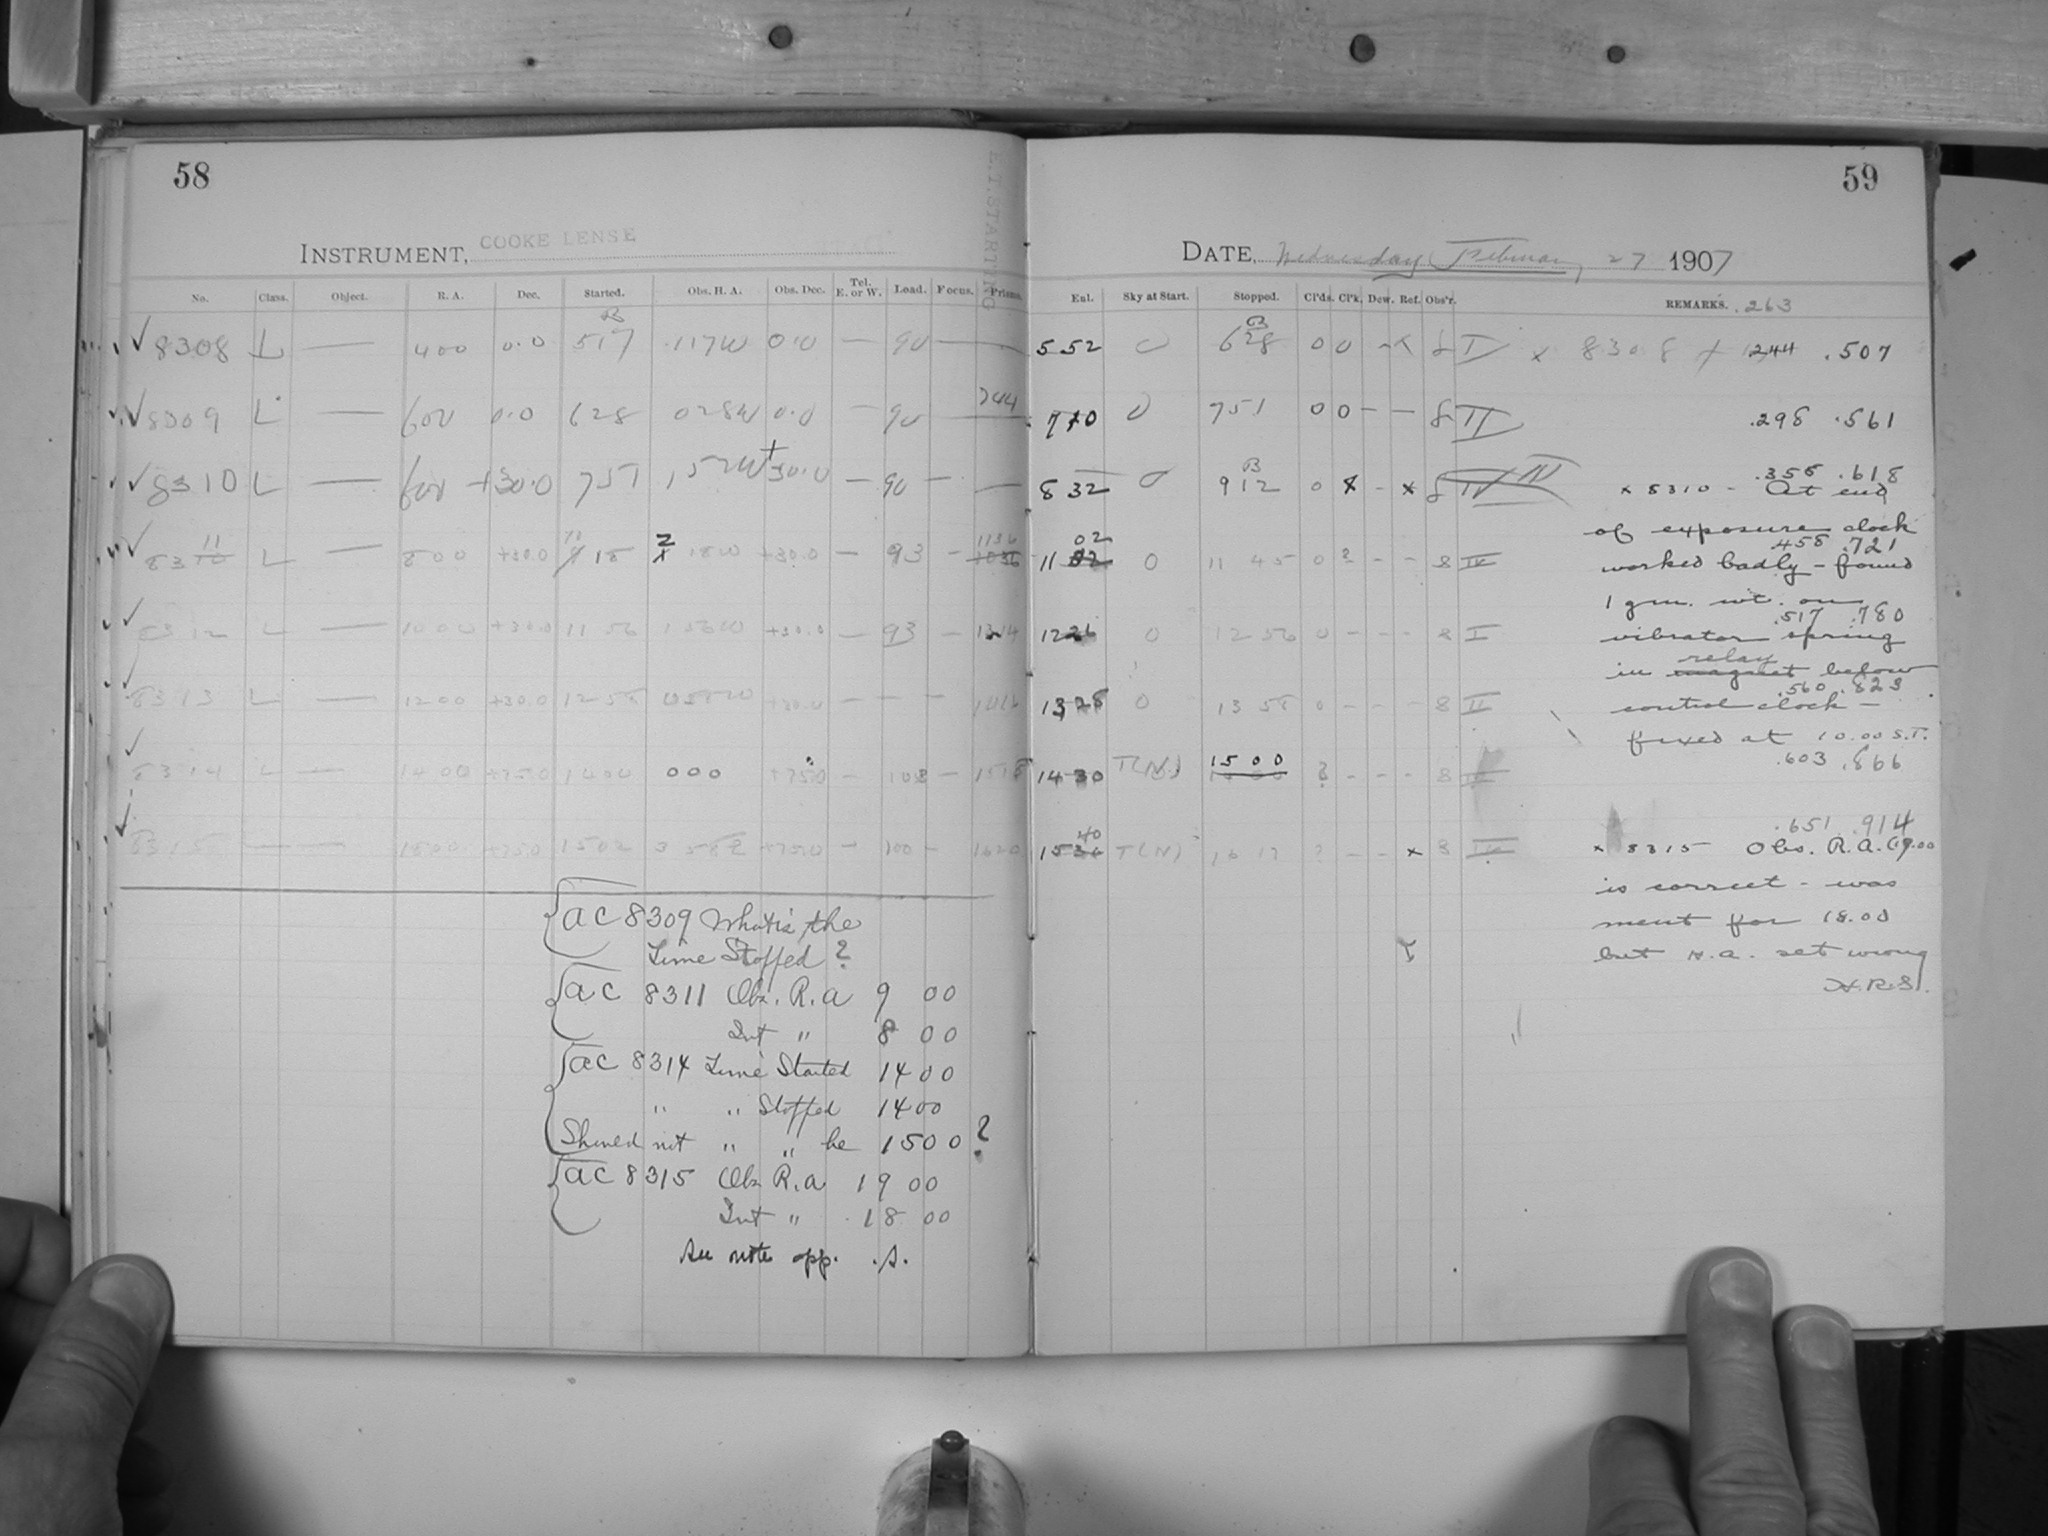 58
E.T. STARTING
INSTRUMENT, COOKE LENSE
No. Class. Object. R. A. Dec. Started. Obs. H. A. Obs. Dec. Tel. E. or W. Load. Focus. Prisms.
✓ 8308 L 400 0.0 517 117W 0.0 — 90 —
✓ 8309 L — 600 0.0 628 028W 0.0 — 90 744
✓ 8310 L — 600 +30.0 751 152W +30.0 — 90 — —
✓ 8311 L — 800 +30.0 18W +30.0 — 93 — 1136
✓ 8312 L — 1000 +30.0 11 56 156W +30.0 — 93 — 1314
✓ 8313 L — 1200 +30.0 12 58 058W +30.0 — — —
✓ 8314 L — 1400 +75.0 1400 000 +75.0 — 108 — 1518
✓ 8315 — — 1800 +75.0 1502 +75.0 — 100 — 1620
AC 8309 What is the
Time Stopped?
AC 8311 Obs. R.A 9 00
Int " 8 00
AC 8314 Time Started 1400
" " Stopped 1400
Should not " " be 1500?
AC 8315 Obs R.A 19 00
Int " 18 00
See note opp. S.
59
DATE, Wednesday February 27 1907
Eul. Sky at Start. Stopped. Cl'ds. Cl'k. Dew. Ref. Obs'r. REMARKS. .263
552 0 628 0 0 - x 8 I x 8308 .244 .507
710 0 751 0 0 — — 8 II .298 .561
832 0 912 0 x - x 8 IV .355 .618
x 8310 - At end
of exposure clock
11 02 0 11 45 0 ? - - 8 IV .458 .721
worked badly - found
1 gm. wt. on
1226 0 1256 0 - - - 8 I .517 .780
vibrator spring
in relay below
1328 0 13 58 0 - - - 8 II .560 .823
control clock —
fixed at 10.00 S.T.
1430 T(N) 1500 ? - - - 8 .603 .866
1540 T(N) 1617 ? - - x 8 .651 .914
x 8315 Obs. R.A. (19.00
is correct - was
meant for 18.00
but H.A. set wrong
H.R.S.